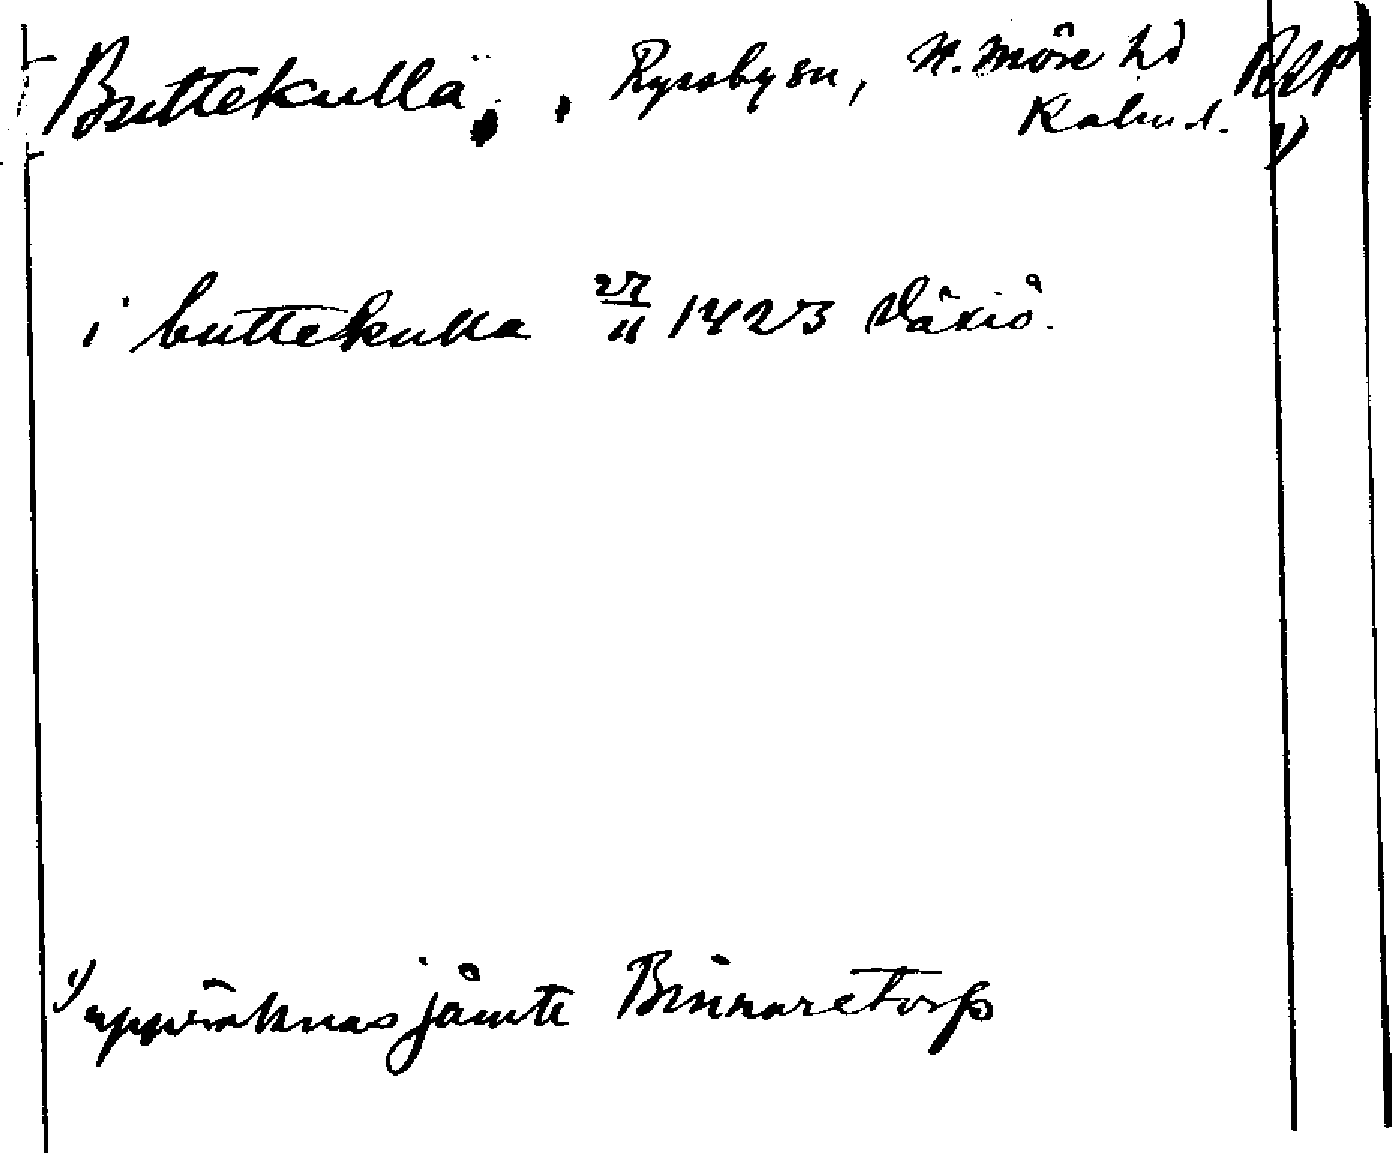 Buttekulla, Ryssby sn, N. Möre hd
Kalm. l.
i buttekulla 27/11 1423 Växiö.
1) uppräknas jämte Binnaretorp